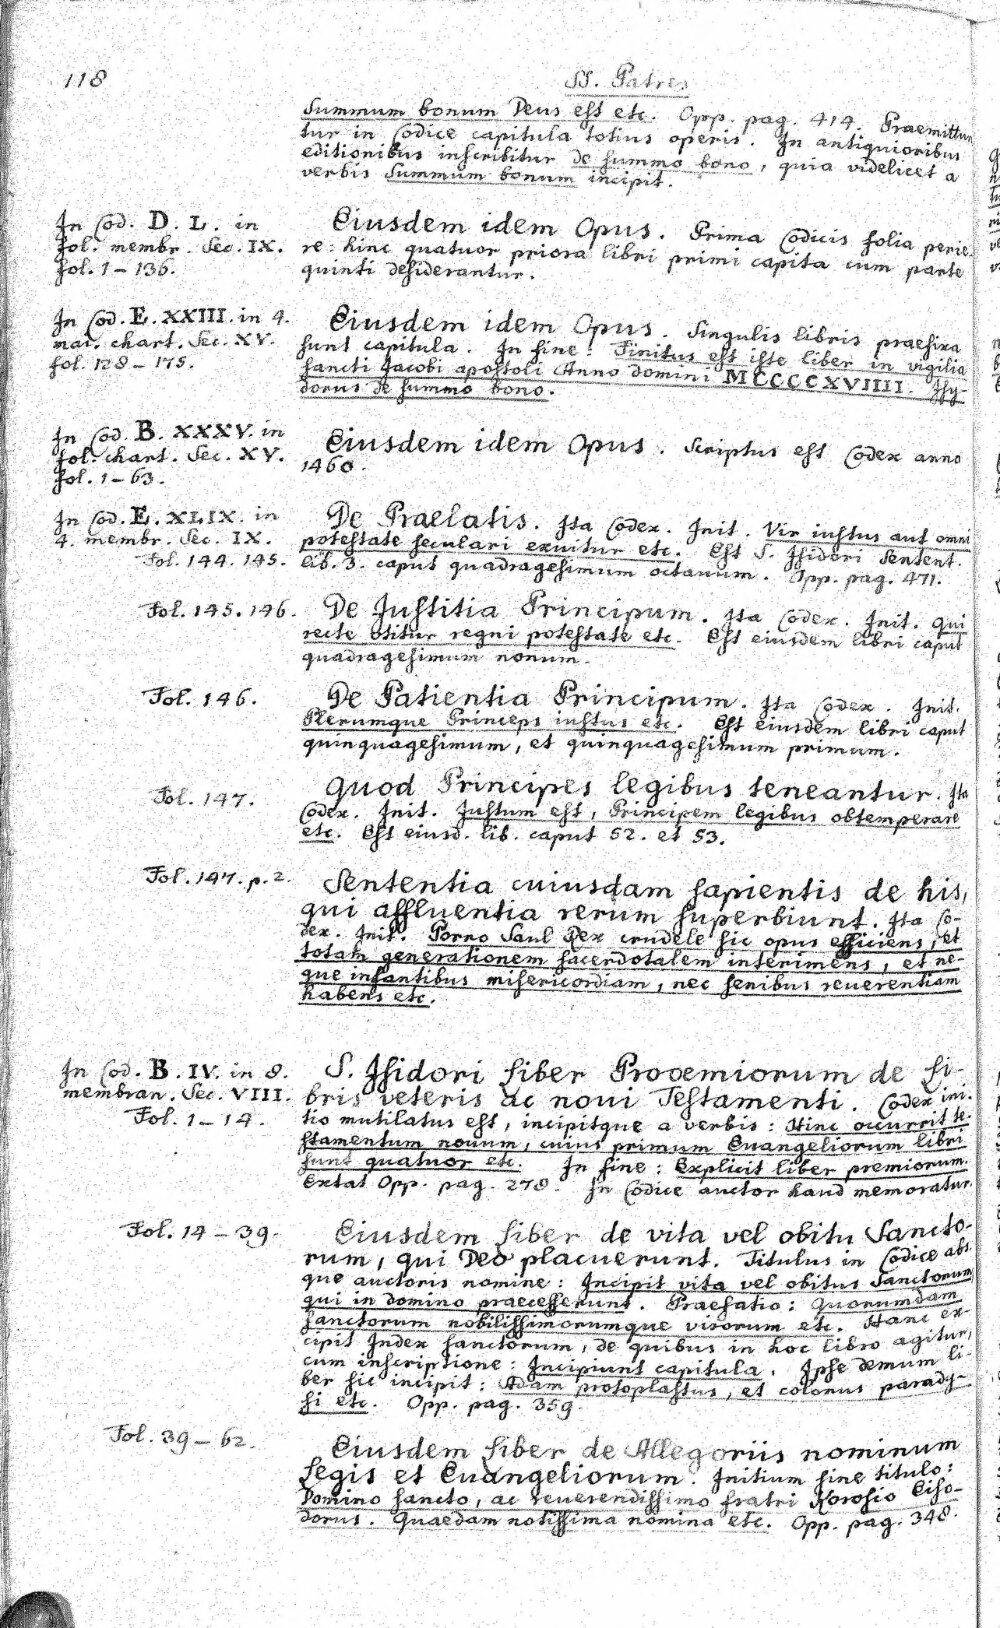 118
SS. Patres
Summum bonum Deus est etc. Opp. pag. 414. Praemittun
tur in Codice capitula totius operis. In antiquioribus
editionibus inscribitur de summo bono, quia videlicet a
verbis Summum bonum incipit.
In Cod. D. L. in
fol. membr. Sec. IX.
fol. 1 – 136.
Eiusdem idem Opus. Prima Codicis folia perie-
re: hinc quatuor priora libri primi capita cum parte
quinti desiderantur.
In Cod. E. XXIII. in 4.
mai. chart. Sec. XV.
fol. 128 – 175.
Eiusdem idem Opus. Singulis libris praefixa
sunt capitula. In fine: Finitus est iste liber in vigilia
sancti Jacobi apostoli Anno domini MCCCCXVIIII. Isy-
dorus de summo bono.
In Cod. B. XXXV. in
fol. chart. Sec. XV.
fol. 1 – 63.
Eiusdem idem Opus. Scriptus est Codex anno
1460.
In Cod. E. XLIX. in
4. membr. Sec. IX.
Fol. 144. 145.
De Praelatis. Ita Codex. Init. Vir iustus aut omni
potestate seculari exuitur etc. Est S. Isidori Sentent.
lib. 3. caput quadragesimum octavum. Opp. pag. 471.
Fol. 145. 146.
De Justitia Principum. Ita Codex. Init. Qui
recte utitur regni potestate etc. Est eiusdem libri caput
quadragesimum nonum.
Fol. 146.
De Patientia Principum. Ita Codex. Init.
Plerumque Princeps iustus etc. Est eiusdem libri caput
quinquagesimum, et quinquagesimum primum.
Fol. 147.
Quod Principes legibus teneantur. Ita
Codex. Init. Justum est, Principem legibus obtemperare
etc. Est eiusd. lib. caput 52. et 53.
Fol. 147. p. 2.
Sententia cuiusdam sapientis de his,
qui affluentia rerum superbiunt. Ita Co-
dex. Init. Porro Saul Rex crudele sic opus efficiens, et
totam generationem sacerdotalem interimens, et ne-
que infantibus misericordiam, nec senibus reuerentiam
habens etc.
In Cod. B. IV. in 8.
membran. Sec. VIII.
Fol. 1 – 14.
S. Isidori Liber Prooemiorum de Li-
bris veteris ac noui Testamenti. Codex ini-
tio mutilatus est, incipitque a verbis: Hinc occurrit te-
stamentum nouum, cuius primum Euangeliorum libri
sunt quatuor etc. In fine: Explicit liber premiorum.
Extat Opp. pag. 278. In Codice auctor haud memoratur.
Fol. 14 – 39.
Eiusdem Liber de vita vel obitu Sancto-
rum, qui Deo placuerunt. Titulus in Codice abs-
que auctoris nomine: Incipit vita vel obitus Sanctorum,
qui in domino praecesserunt. Praefatio: Quorumdam
sanctorum nobilissimorumque virorum etc. Hanc ex-
cipit Index sanctorum, de quibus in hoc libro agitur,
cum inscriptione: Incipiunt capitula. Ipse demum li-
ber sic incipit: Adam protoplastus, et colonus parady-
si etc. Opp. pag. 359.
Fol. 39 – 62.
Eiusdem Liber de Allegoriis nominum
Legis et Euangeliorum. Initium sine titulo:
Domino sancto, ac reuerendissimo fratri Horosio Eiso-
dorus. Quaedam notissima nomina etc. Opp. pag. 348.